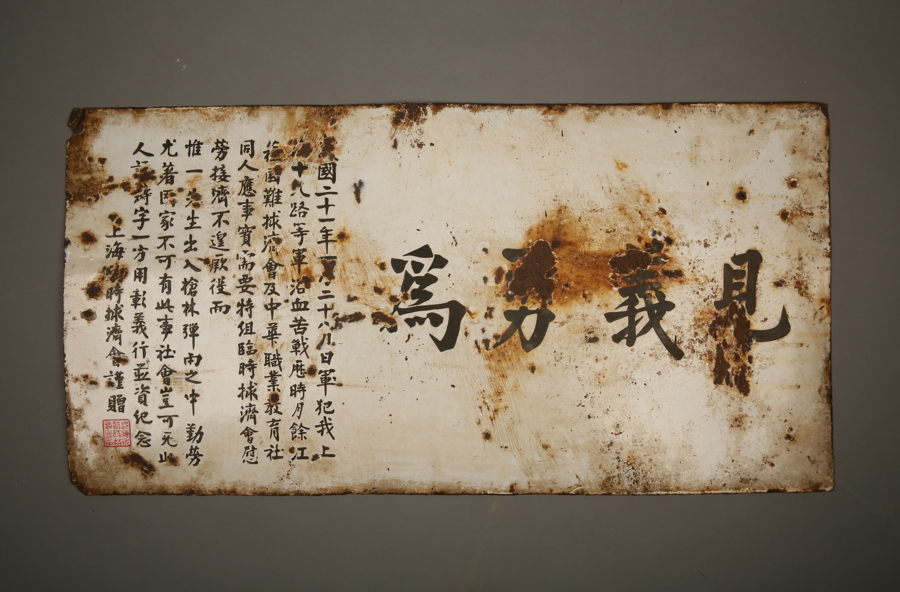 見義勇為
國二十一年一月二十八日軍犯我上
十九路等軍浴血苦戰歷時月餘江
國難捄濟會及中華職業教育社
同人應事實需要特組臨時捄濟會慰
勞接濟不遑厥後而
惟一先生出入槍林彈雨之中勤勞
尤著國家不可有此事社會豈可无此
人謹詩字一方用彰義行並資紀念
上海臨時捄濟會謹贈